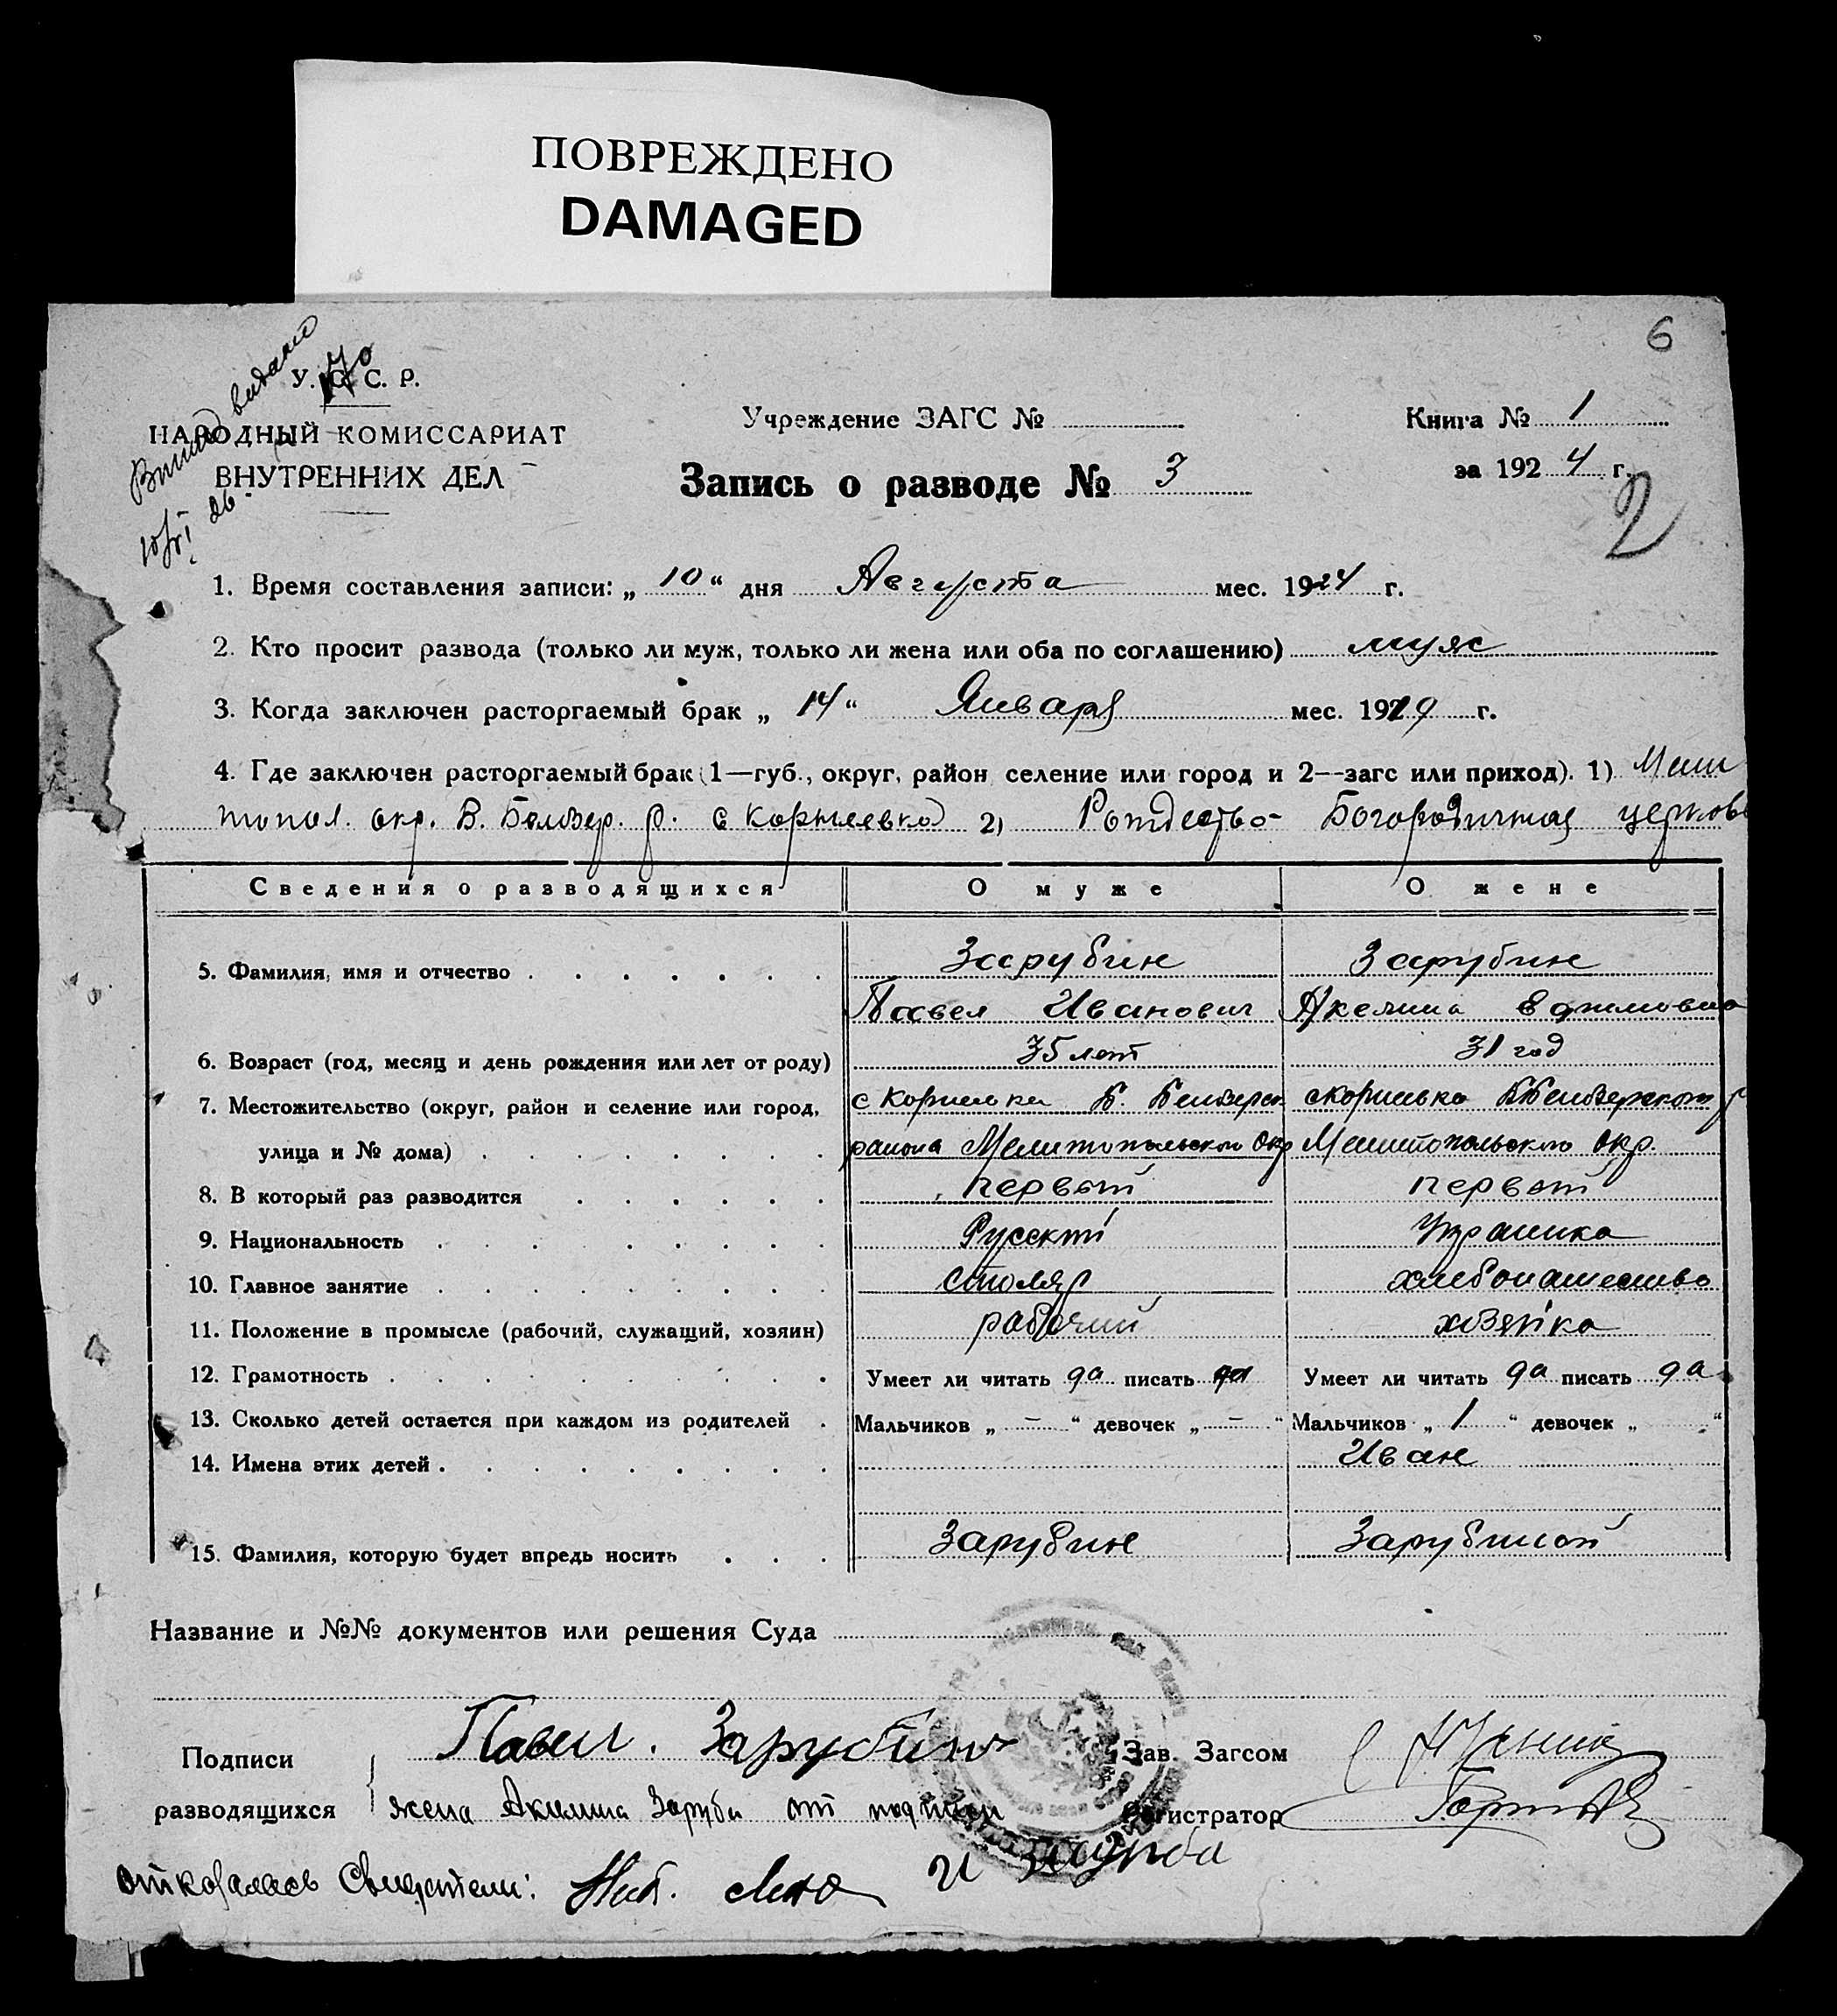 ПОВРЕЖДЕНО
DAMAGED
6
170
У. С. С. Р.
НАРОДНЫЙ КОМИССАРИАТ
ВНУТРЕННИХ ДЕЛ
видано
26.
Учреждение ЗАГС №
Запись о разводе № 3
Книга № 1
за 1924 г.
2
1. Время составления записи: „ 10 “ дня Августа мес. 1924 г.
2. Кто просит развода (только ли муж, только ли жена или оба по соглашению) муж
3. Когда заключен расторгаемый брак „ 14 “ Января мес. 1919 г.
4. Где заключен расторгаемый брак (1—губ., округ, район, селение или город и 2—загс или приход). 1) Мели
топол. окр. Б. р. с 2) Рождество- Богородичная церковь
Сведения о разводящихся О муже О жене
5. Фамилия, имя и отчество Зарубин Зарубин
Павел Иванович Акелина
6. Возраст (год, месяц и день рождения или лет от роду) 35 лет 31 год
7. Местожительство (округ, район и селение или город,
улица и № дома) района Мелитопольского Окр Мелитопольского Окр.
8. В который раз разводится первый первый
9. Национальность Русский Украинка
10. Главное занятие столяр хлебопашество
11. Положение в промысле (рабочий, служащий, хозяин) рабочий хозяйка
12. Грамотность Умеет ли читать да писать да Умеет ли читать да писать да
13. Сколько детей остается при каждом из родителей Мальчиков „ – “ девочек „ – “ Мальчиков „ 1 “ девочек „ “
14. Имена этих детей Иван
15. Фамилия, которую будет впредь носить Зарубин Зарубиной
Название и №№ документов или решения Суда
Подписи
разводящихся
Павел. Зарубин
Зав. Загсом
жена Акилина Заруби от подписи
Регистратор
отказалась Свидетели: и